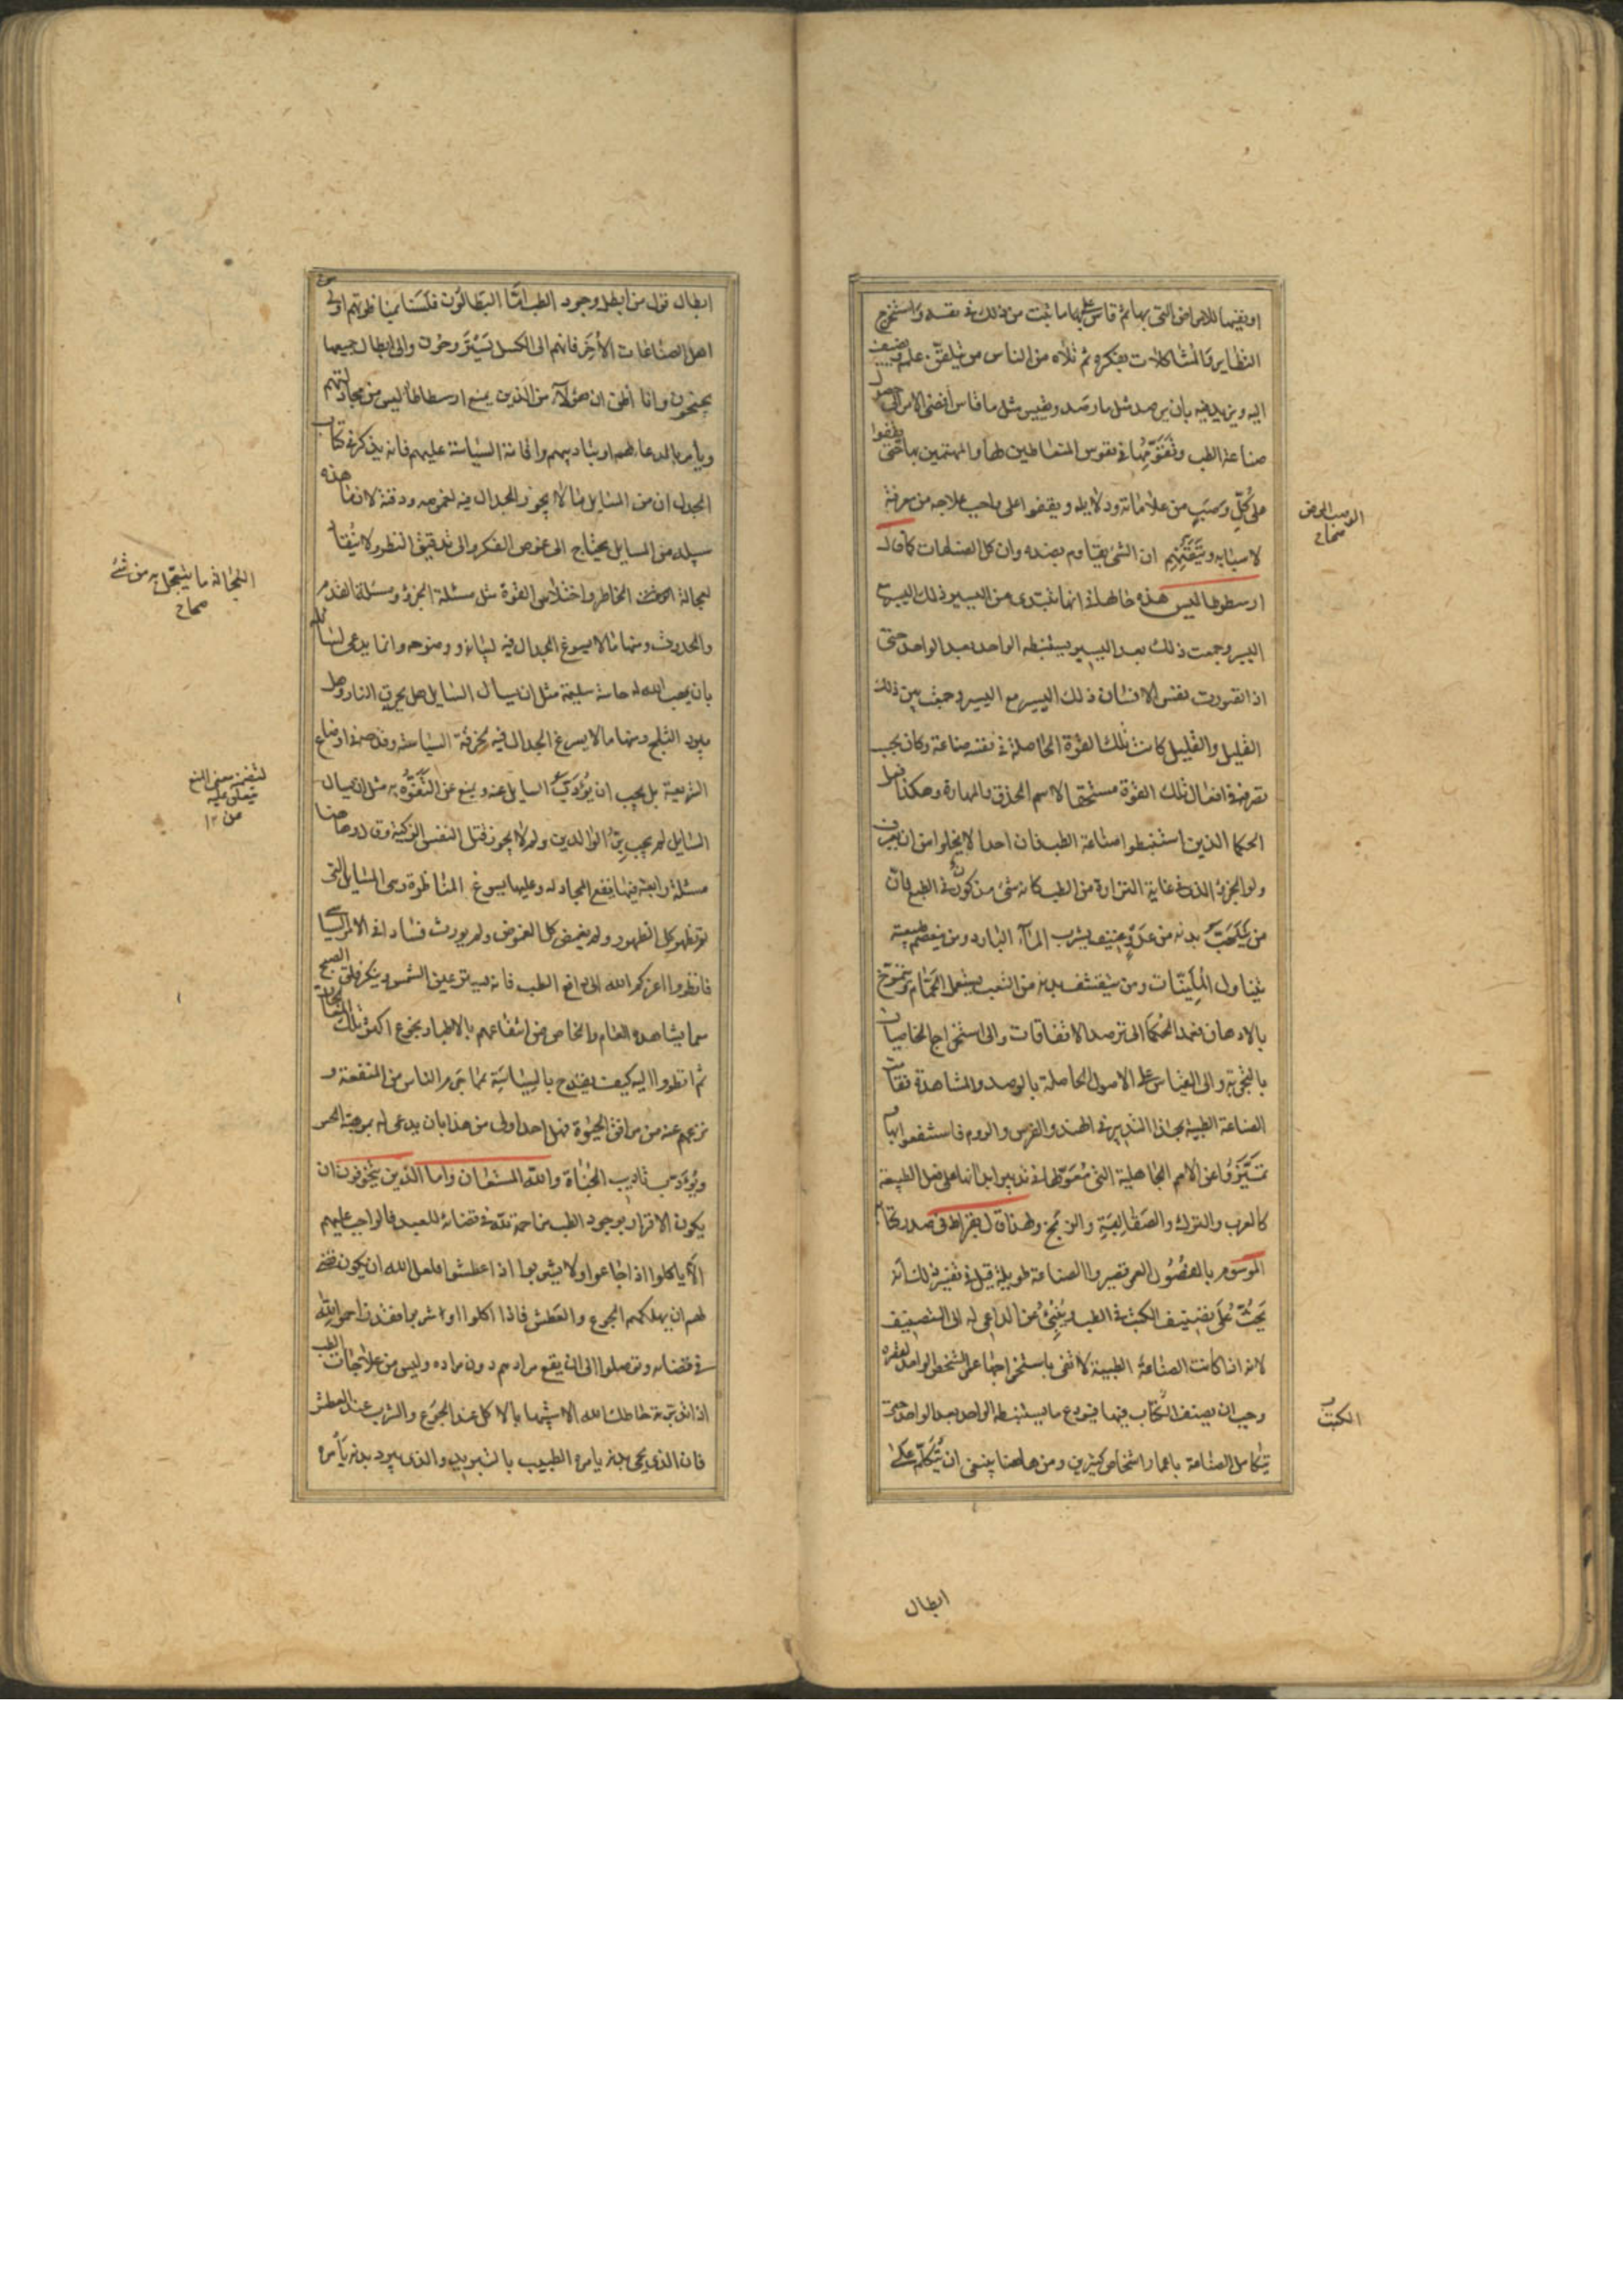 او بفيها للامراض التى بها ثم قاس عليها ما ثبت من ذلك فى نفسه واستخرج
النظاير والمشاكلات بفكره ثم تلاه من الناس من تلقى علمه يضيف
اليه ويزيد فيه بان يرصد مثل ما رصد ويقيس مثل ما قاس افضى الامر الى حصول
صناعة الطب وتفتقها فى نفوس المتعاطين لها والمهتمين بها حتى يقفوا
على كل وصب من علاماته ودلايله ويقفوا على واجب علاجه من معرفة
لاسبابه وتيقنهم ان الشئ يقاوم بضده وان كل الصناعات كما قال
ارسطوطاليس هذه حالها فى انما تبتدى من اليسير وذلك اليسير
اليسير وجمعت ذلك بعد اليسير يستنبطه الواحد بعد الواحد حتى
اذا تصورت نفس الانسان ذلك اليسير مع اليسير وجمعت بين ذلك
القليل والقليل كانت تلك القوة الحاصلة فى نفسه صناعة وكان يجب
تصرفه فى افعال تلك القوة مستحقا لاسم الحذق والمهارة وهكذا فعل
الحكما الذين استنبطوا صناعة الطب فان احدا لا يخلوا من ان يعرف
ولو الجزء الذى فى غاية النزارة من الطب كانه شئ مركون فى الطبع فان
من بدنه من يشرب المآء البارد ومن طبيعته
يتناول الملينات ومن يتقشف بدنه من التعب يستعمل الحمام ويتمرخ
بالادهان فعمد الحكما الى ترصد الاتفاقات والى استخراج الخاصيات
بالتجربة والى القياس على الاصول الحاصلة بالرصد والمشاهدة فقامت
الصناعة الطبية بهذا التدبير فى الهند والفرس والروم فاستشفعوا بها
تميزوا عن الامم الجاهلية التى معولها فى تدبير ابدانها على فعل الطبيعة
كالعرب والترك والصقالبة والزنج ولهذا قال بقراط فى صدر كتابه
الموسوم بالفصول العمر قصير والصناعة طويلة قيل فى تفسيره لك انه
يحث على تصنيف الكتب فى الطب وينبئ عن الداعى له الى التصنيف
لانه اذا كانت الصناعة الطبية لا تفى باستخراجها عمر الشخص الواحد لقصره
وجب ان يصنف الكتاب فيها فيودع ما يستنبطه الواحد بعد الواحد حتى
يتكامل الصناعة باعمار اشخاص كثيرين ومن هاهنا ينبغى ان يتكلم على
الوصب المرض
صحاح
الكتب
ابطال
ابطال قول من ابطل وجود الطب اما البطالون فلسنا بمناظرتهم اولى من
اهل الصناعات الأخر فانهم الى الكسل يستروحون والى ابطال جميعها
يجنحون وانا اظن ان هؤلآء من الذين يمنع ارسطاطاليس من مجادلتهم
ويأمر بالدعا لهم او بتاديبهم واقامة السياسة عليهم فانه يذكر فى كتاب
الجدل ان من المسايل ما لا يجوز الجدال فيه لغموضه ودقته لان ما هذه
سبيله من المسايل يحتاج الى غوص الفكر والى تدقيق النظر ولا يتأ
لعجالة الخاطر واختلاس القوة مثل مسئلة الجزؤ ومسئلة القدم
والحدوث ومنها ما لا يسوغ الجدال فيه لبيانه ووضوحه وانما يدعى لسائله
بان يهب الله له حاسة سليمة مثل ان يسال السايل هل يحرق النار وهل
يبرد الثلج ومنها ما لا يسوغ الجدال فيه السياسة اوضاع
الشريعة بل يجب ان يؤدب السايل عنه ويمنع عن التفوه به مثل ان يسال
السايل لم يجب بر الوالدين ولم لا يجوز قتل النفس الزكية وهاهنا
مسئلة رابعة فيها يقع المجادله وعليها يسوغ المناظرة وهى المسايل التى
لم تظهر كل الظهور ولم يغمض كل الغموض ولم يورث فسادا فى الامر
فانظروا اعزكم الله الى دافع الطب فانه يستر عين الشمس وينكر فلق الصبح
مما يشاهده العام والخاص من انتفاعهم بالاطباء بنجوع اكثر تلك
ثم انظروا اليه كيف يقدح بالسياسة عما بين الناس من المنفعة و
من مرافق الحيوة فهل احد اولى من هذا بان يدعى له
ويؤدب تاديب الجناة والله المستعان واما الذين يتخوفون ان
يكون الاقرار بوجود الطب مزاحمة لله فى قضائه للعبد فالواجب عليهم
الا ياكلوا اذا جاعوا ولا يشربوا اذا اعطشوا فلعل الله ان يكون قضى
لهم ان يهلكهم الجوع والعطش فاذا اكلوا او اشربوا فقد زاحموا الله
فى قضائه وتوصلوا الى ان يقع مرادهم دون مراده وليس من علاجات الطب
اذا تدبرته حاطك الله الا شبيها بالاكل عند الجوع والشرب عند العطش
فان الذى يحمى بدنه يامره الطبيب بالتبريد والذى يبرد بدنه يأمره
العجالة ما تيعجل به من شئ
صحاح
لتضمن معنى المنع
يتعدى عليه
من ١٢